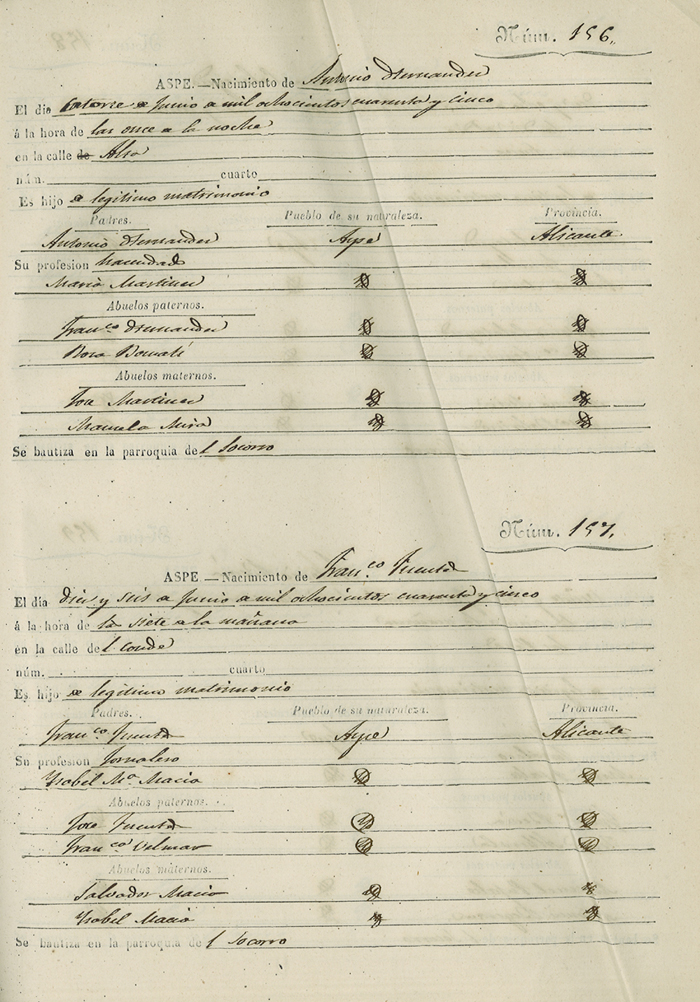 Núm. 156.
ASPE.—Nacimiento de Antonio Hernandez
El dia catorce de Junio de mil ochocientos cuarenta y cinco
á la hora de las once de la noche
en la calle de Alta
núm. cuarto
Es hijo de legitimo matrimonio
Padres. Pueblo de su naturaleza. Provincia.
Antonio Hernandez Aspe Alicante
Su profesion hacendado
Maria Martinez
Abuelos paternos.
Franco. Hernandez
Rosa
Abuelos maternos.
Martinez
Manuela Mira
Se bautiza en la parroquia del Socorro
Núm. 157.
ASPE.—Nacimiento de Franco.
El dia diez y seis de Junio de mil ochocientos cuarenta y cinco
á la hora de la siete de la mañana
en la calle del Conde
núm. cuarto
Es hijo de legitimo matrimonio
Padres. Pueblo de su naturaleza. Provincia.
Franco. Aspe Alicante
Su profesion Jornalero
Ysabel Ma. Macia
Abuelos paternos.
Franco.
Abuelos maternos.
Salvador Macia
Ysabel Macia
Se bautiza en la parroquia del Socorro